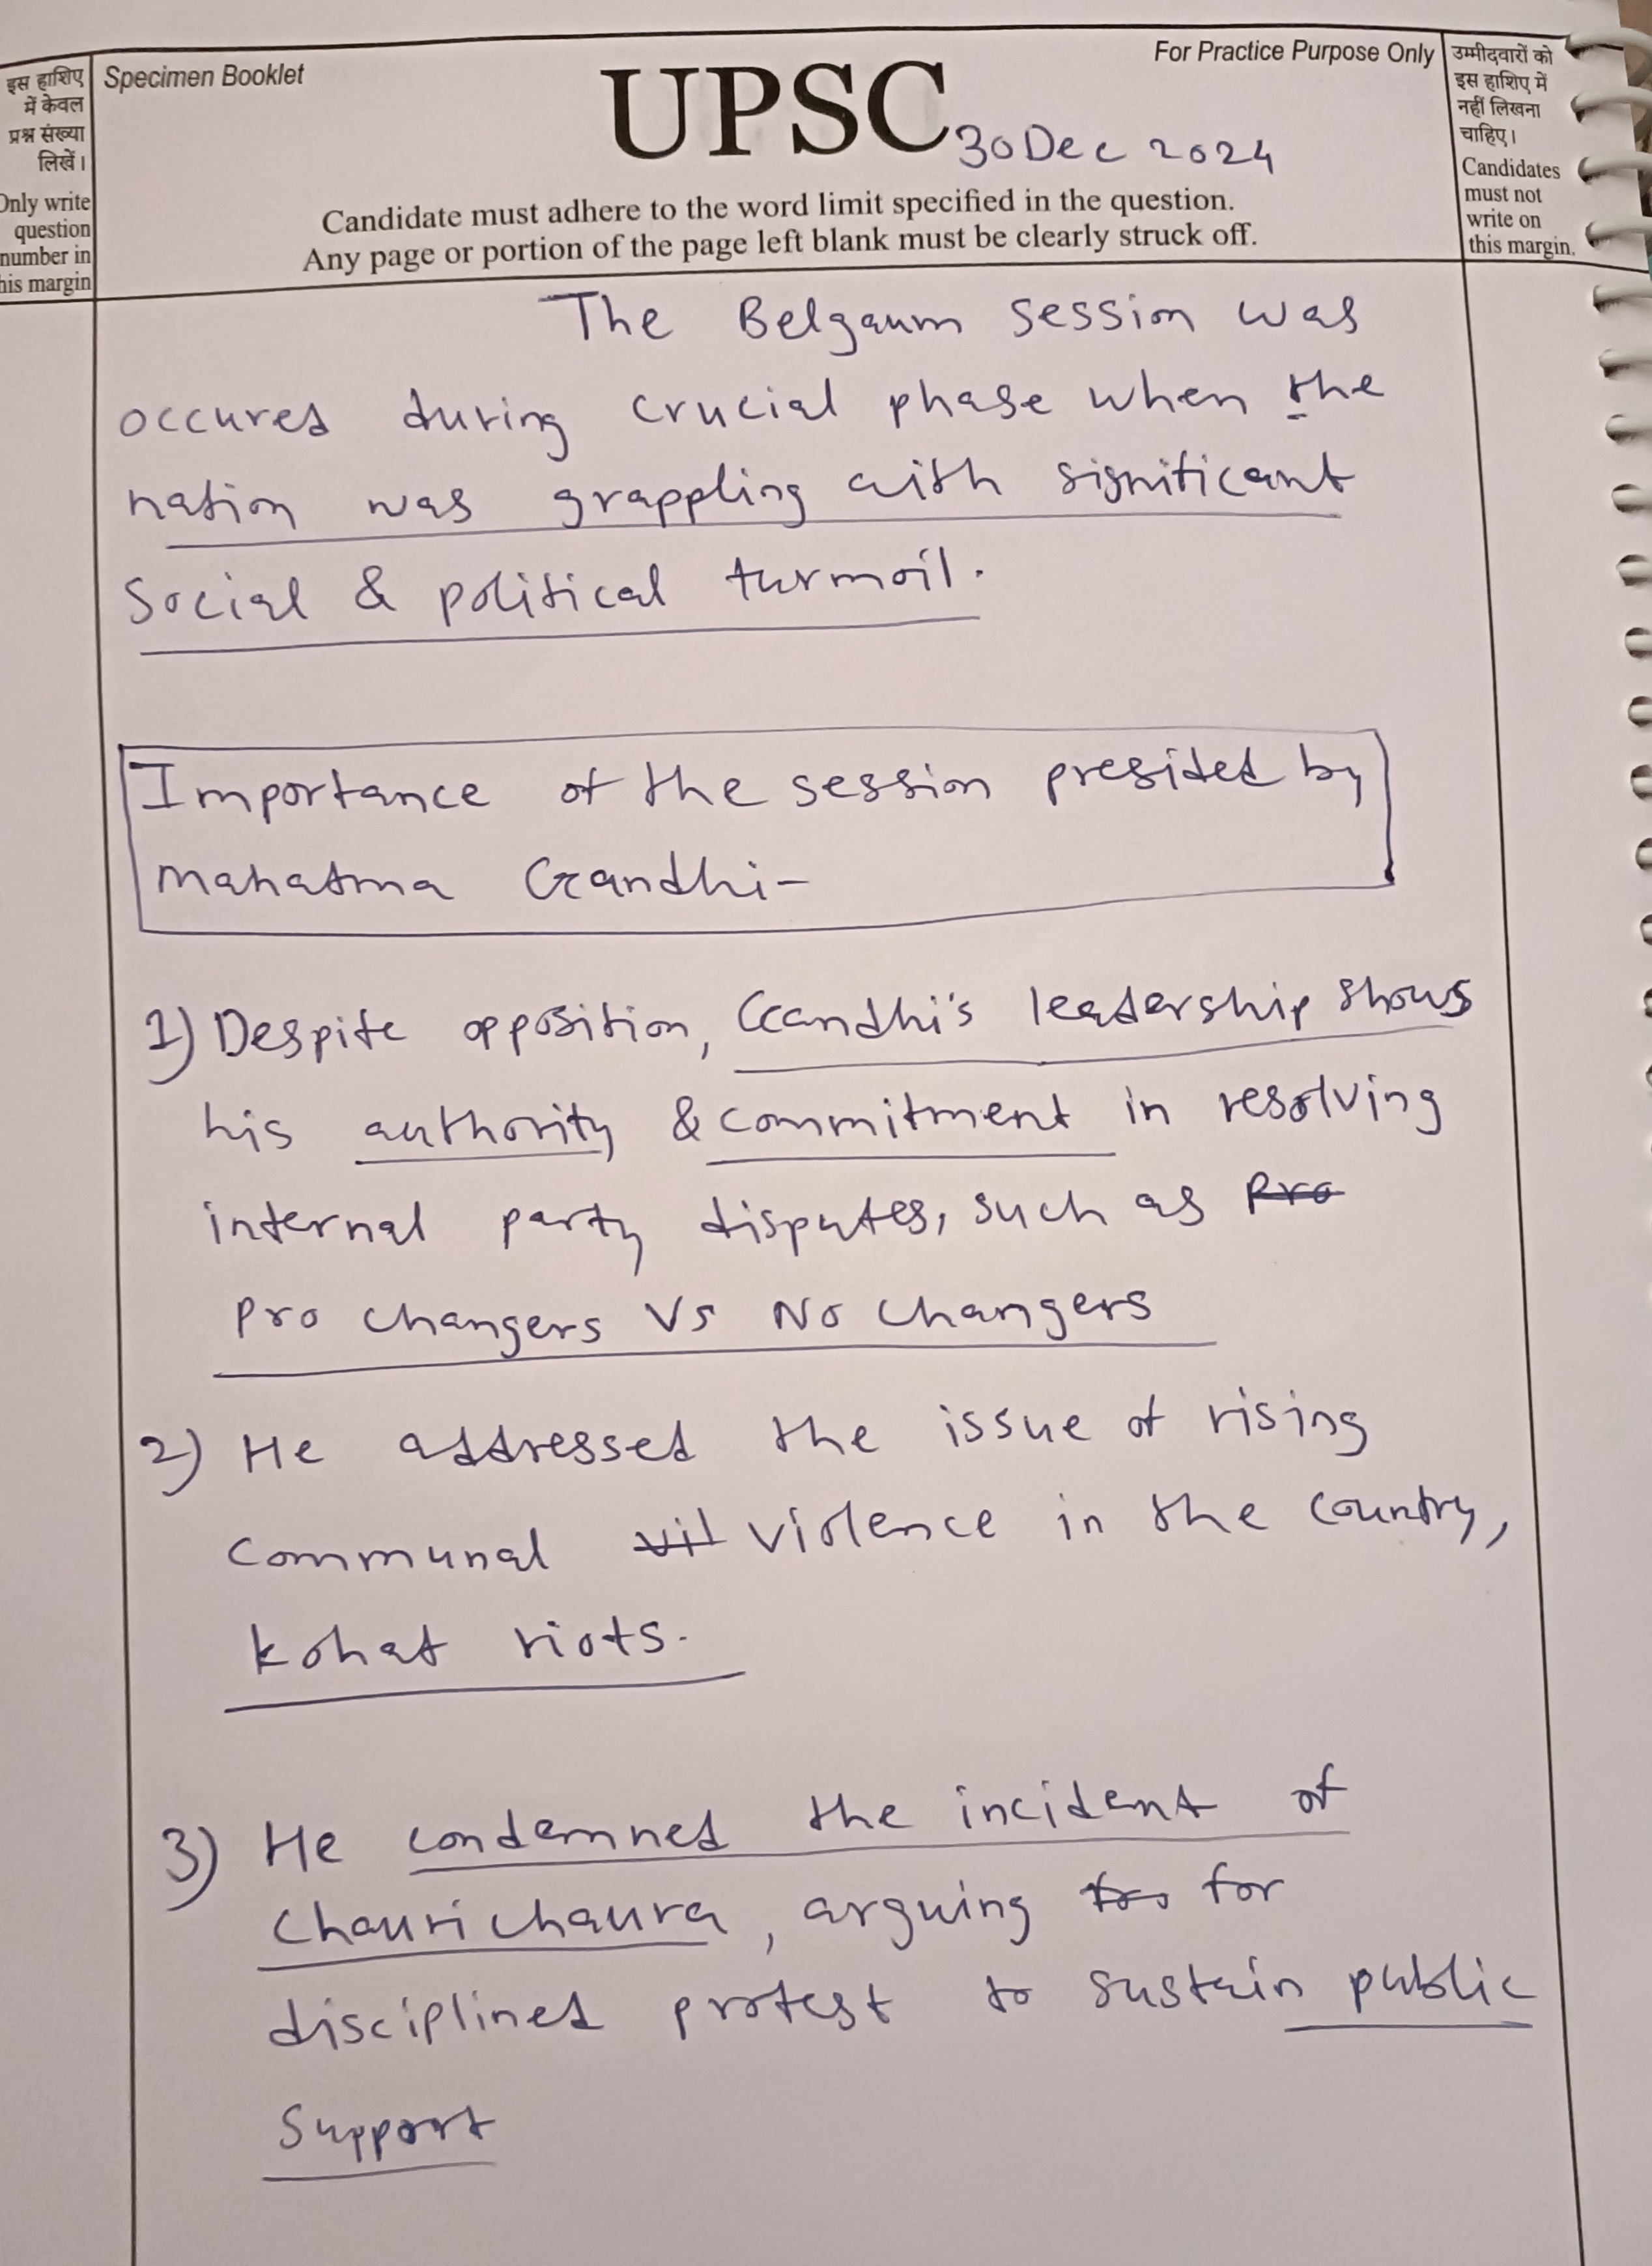 इस हाशिए
में केवल
प्रश्न संख्या
लिखें।
Only write
question
number in
his margin
Specimen Booklet
UPSC
30 Dec 2024
For Practice Purpose Only
Candidate must adhere to the word limit specified in the question.
Any page or portion of the page left blank must be clearly struck off.
उम्मीदवारों को
इस हाशिए में
नहीं लिखना
चाहिए।
Candidates
must not
write on
this margin.
The Belgaum session was
occured during crucial phase when the
nation was grappling with significant
Social & political turmoil.
Importance of the session presided by
Mahatma Gandhi-
1) Despite opposition, Gandhi's leadership shows
his authority & commitment in resolving
internal party disputes, such as Pro
Pro changers Vs No changers
2) He addressed the issue of rising
communal vil violence in the country,
kohat riots.
3) He condemned the incident of
Chaurichaura, arguing for
disciplined protest to sustain public
Support